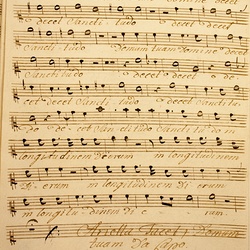 decet Sancti tudo decet decet
Sancti tudo Domum tuam Domine decet
Sancti tudo decet decet de
cet decet Sancti tudo decet Sanctitu
do decet Sancti tudo Sancti tudo in
longitudinem dierum in longitudinem
di erum in longitudinem di erum
in longitu dinem di e rum.
Ariella Tacet; Domum
tuam Da Capo.